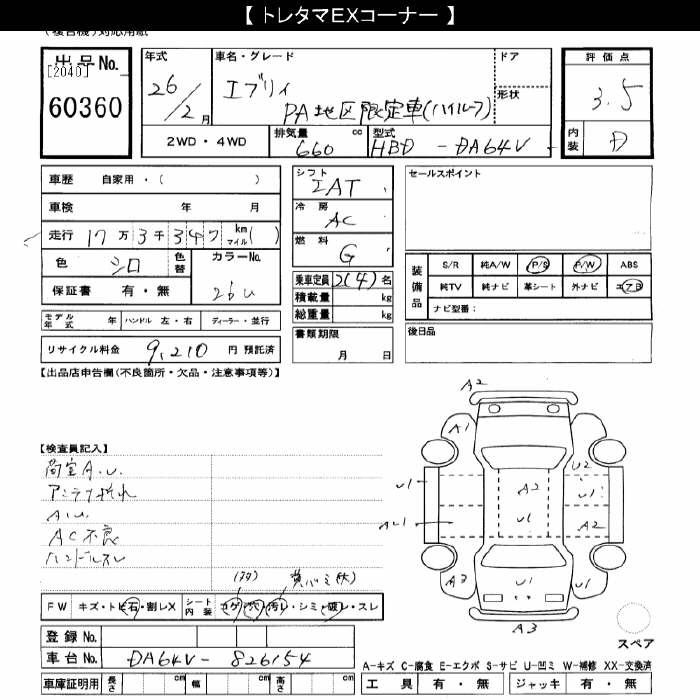 【 トレタマEXコーナー 】
(複合機)対応用紙
出品No.
[2040]
60360
年式
26/2 月
車名・グレード
エブリィ
PA 地区限定車(ハイルーフ)
ドア
形状
評価点
3.5
内装
D
2WD・4WD
排気量 660 cc
型式 HBD - DA64V
車歴 自家用・( )
車検 年 月
走行 17万3千347 km マイル( )
色 シロ 色替
カラーNo. 26U
保証書 有・無
モデル年式 年 ハンドル 左・右 ディーラー・並行
リサイクル料金 9,210 円 預託済
シフト
IAT
冷房
AC
燃料
G
乗車定員 2(4) 名
積載量 kg
総重量 kg
書類期限
月 日
セールスポイント
装備品
S/R 純A/W P/S P/W ABS
純TV 純ナビ 革シート 外ナビ エアB
ナビ型番:
後日品
【出品店申告欄(不良箇所・欠品・注意事項等)】
【検査員記入】
荷室A.U.
アンテナ折れ
A.U.
AC不良
ハンドルスレ
A2
A1
U2
U1
A2
U1
AU1
U1
A2
A3
U1
U1
A3
スペア
FW キズ・トビ石・割レX
シート内装 コゲ・穴・汚レ・シミ・破レ・スレ
登録No.
車台No. DA64V- 826154
車庫証明用 長さ cm 幅 cm 高さ cm
A-キズ C-腐食 E-エクボ S-サビ U-凹ミ W-補修 XX-交換済
工具 有・無 ジャッキ 有・無